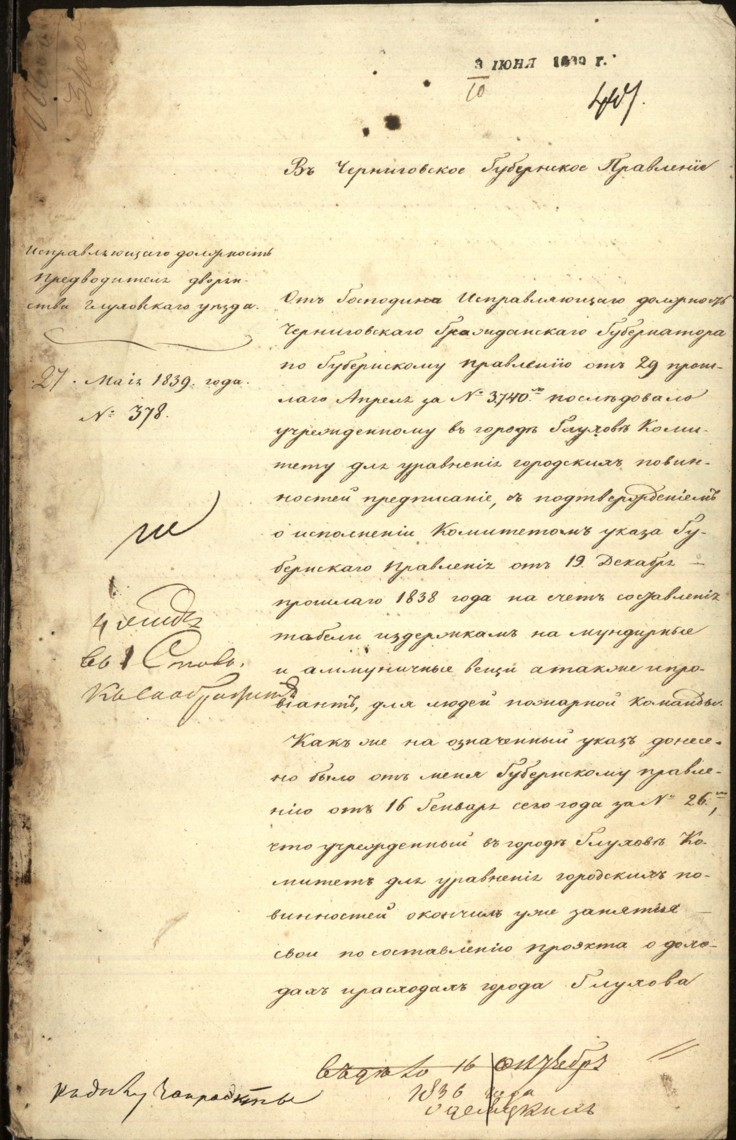 3 ІЮНЯ 1839 г.
10
Въ Черниговское Губернское Правленіе
Исправляющаго должность
Предводителя дворян-
ства Глуховскаго уезда.
27. Маія 1839. года.
№ 378.
Отъ Господина Исправляющаго должность
Черниговскаго Гражданскаго Губернатора
по Губернскому правленію отъ 29 прош-
лаго Апреля за № 3740.мъ послѣдовало
учрежденному въ городѣ Глуховѣ Коми-
тету для уравненія городскихъ повин-
ностей предписаніе, съ подтвержденіемъ
о исполненіи Комитетомъ указа Гу-
бернскаго Правленія отъ 19 Декабря —
прошлаго 1838 года на счетъ составленія
табели издержкамъ на мундирные
и аммуничные вещи а также и про-
віантъ, для людей пожарной команды.
Какъ же на означенный указъ донесе-
но было отъ меня Губернскому правле-
нію отъ 16 Генваря сего года за № 26.мъ,
что учрежденный въ городѣ Глуховѣ Ко-
митетъ для уравненія городскихъ по-
винностей окончилъ уже занятія —
свои по составленію проэкта о дохо-
дахъ и расходахъ города Глухова
въ 1 Столъ.
16 октября
1836 года